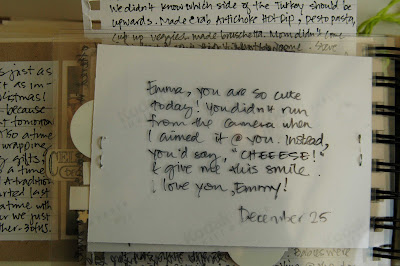 We didn't know which side of the Turkey should be
upwards. Made Crab Artichoke Hot Dip, pesto pasta,
cut up veggies, made bruschetta. Mom didn't come
is just as
it as I'm
hristmas!
because
t tomorrow
so a time
wrapping
gifts.
a time
A tradition
arted last
a time with
we just
other
Emma, you are so cute
today! You didn't run
from the camera when
I aimed it @ you. Instead,
you'd say, "CHEEESE!"
& give me this smile.
I love you, Emmy!
December 25